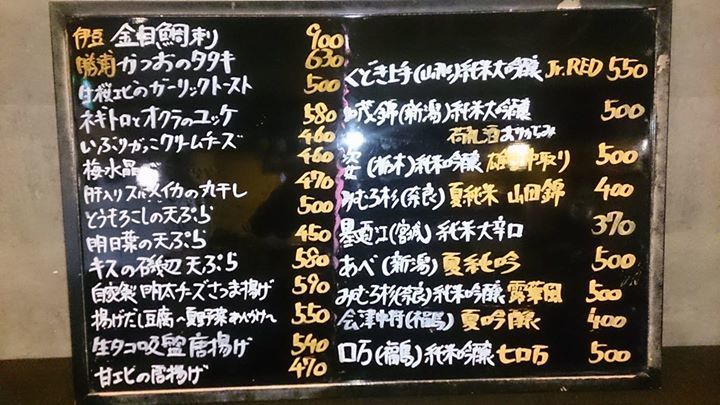 伊豆 金目鯛刺 900
勝浦 かつおのタタキ 630
白桜エビのガーリックトースト 500
ネギトロとオクラのユッケ 580
いぶりがっこクリームチーズ 460
梅水晶 460
肝入りスルメイカの丸干し 470
とうもろこしの天ぷら 500
明日葉の天ぷら 450
キスの磯辺天ぷら 580
自家製 明太チーズさつま揚げ 590
揚げだし豆腐〜夏野菜あんかけ〜 550
生タコ吸盤唐揚げ 540
甘エビの唐揚げ 470
くどき上手(山形)純米大吟醸 Jr.RED 550
加茂錦(新潟)純米大吟醸 500
荷札酒 おりがらみ
(栃木)純米吟醸 雄町 中取り 500
みむろ杉(奈良)夏純米 山田錦 400
墨廼江(宮城)純米大辛口 370
あべ(新潟)夏純吟 500
みむろ杉(奈良)純米吟醸 露葉風 500
会津中将(福島)夏吟醸 400
ロ万(福島)純米吟醸 七ロ万 500